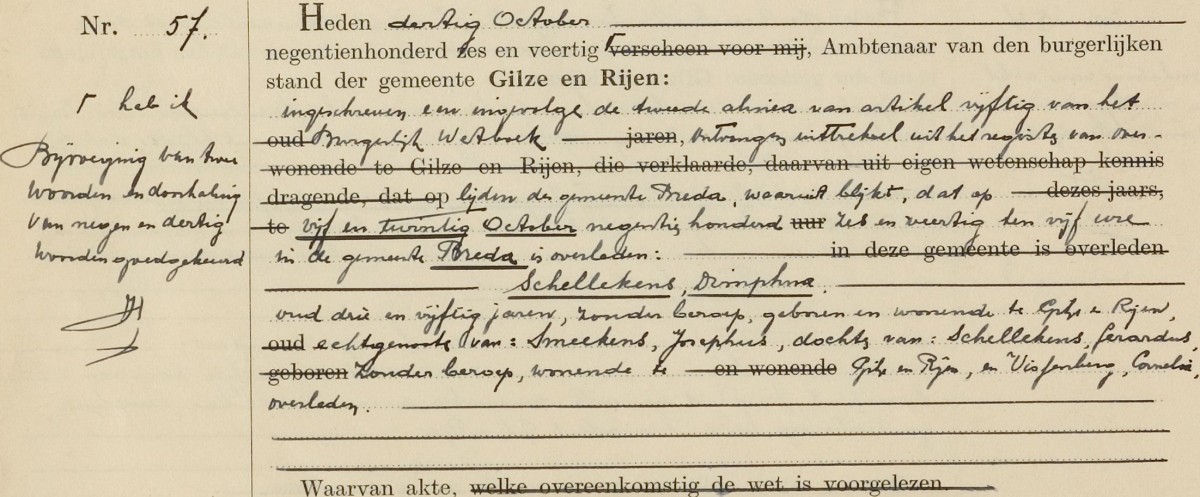 Nr. 57.
Heden dertig October
negentienhonderd zes en veertig ⌈ verscheen voor mij, Ambtenaar van den burgerlijken
stand der gemeente Gilze en Rijen:
⌈ heb ik
ingeschreven een ingevolge de tweede alinea van artikel vijftig van het
oud Burgerlijk Wetboek jaren, ontvangen uittreksel uit het register van over-
Bijvoeging van twee
wonende te Gilze en Rijen, die verklaarde, daarvan uit eigen wetenschap kennis
woorden en doorhaling
dragende, dat op lijden der gemeente Breda, waaruit blijkt, dat op dezes jaars,
van negen en dertig
te vijf en twintig October negentienhonderd uur zes en veertig ten vijf ure
woorden goedgekeurd
in de gemeente Breda is overleden: in deze gemeente is overleden
Schellekens, Dimphna.
oud drie en vijftig jaren, zonder beroep, geboren en wonende te Gilze en Rijen,
oud echtgenoote van: Smeekens, Josephus, dochter van: Schellekens, Gerardus,
geboren zonder beroep, wonende te en wonende Gilze en Rijen, en Vissenberg, Cornelia,
overleden.
Waarvan akte, welke overeenkomstig de wet is voorgelezen.